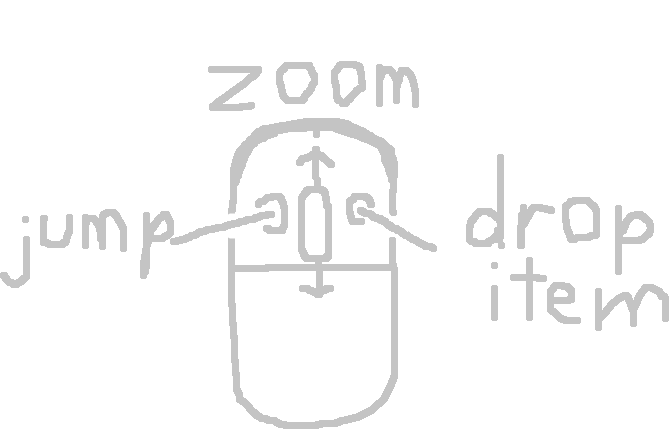 zoom
jump
drop
item